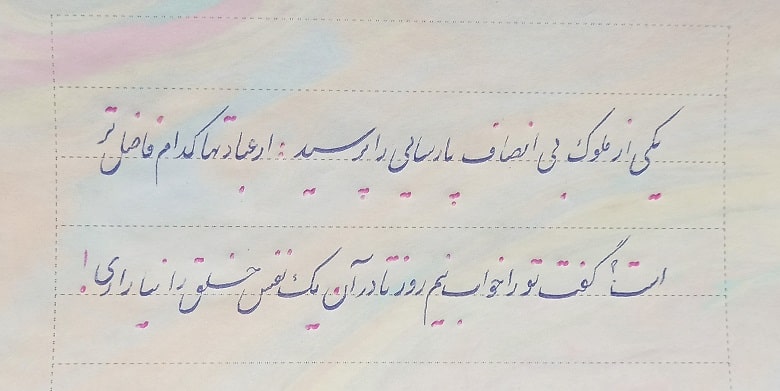 یکی از ملوک بی انصاف پارسائی را پرسید : از عبادتها کدام فاضل تر
است؟ گفت تو را خواب نیم روز تا در آن یک نفس خلق را نیازاری!